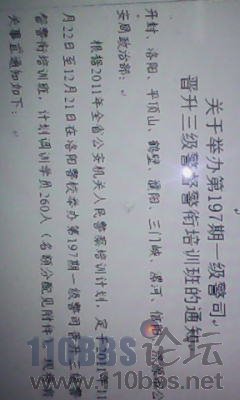 关于举办第197期一级警司
晋升三级警督警衔培训班的通知
开封、洛阳、平顶山、鹤壁、濮阳、三门峡、漯河、信阳、
安局政治部:
根据2011年全省公安机关人民警察培训计划,定于2011年11
月22日至12月21日在洛阳警校举办第197期一级警司晋升三级警
督警衔培训班,计划调训学员260人(名额分配见附件),现将有
关事宜通知如下:
110BBS论坛
www.110bbs.net